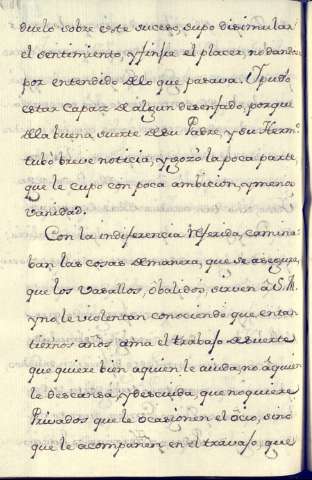 duelo sobre este suceso, supo disimular
el sentimiento, y finjir el placer, no dandose
por entendido de lo que pasava. Y pudo
estar capaz de algun desenfado, porque
de la buena suerte de su Padre, y su Herm.º
tubo breve noticia, y gozó la poca parte,
que le cupo con poca ambicion, y menos
vanidad.
Con la indiferencia referida, camina-
ban las cosas de manera, que se asegura,
que los vasallos, ó validos, sirven á S. M.
y no le violentan conociendo que en tan
tiernos años, ama el trabajo de suerte
que quiere bien a quien le aiuda, no á quien
le descansa, y descuida, que no quiere
Privados que le ocasionen el ócio, sinó
que le acompañen en el travajo, que